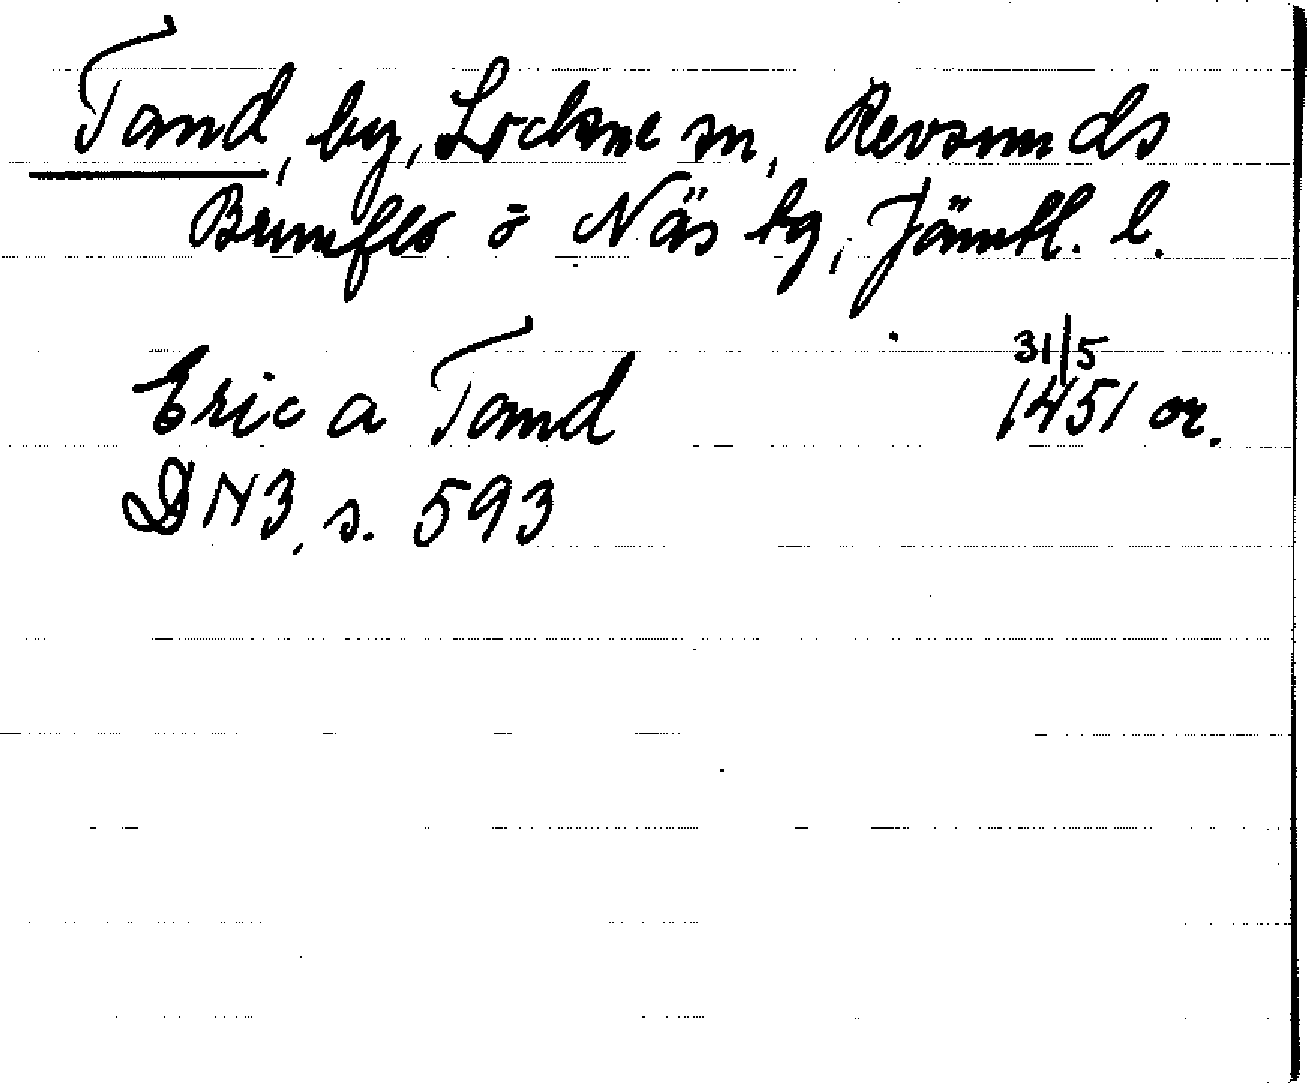 Tand, by, Lockne sn, Revsunds
Brunflo o Näs tg, Jämtl. l.
31/5
Eric a Tand 1451 or.
DN3, s. 593